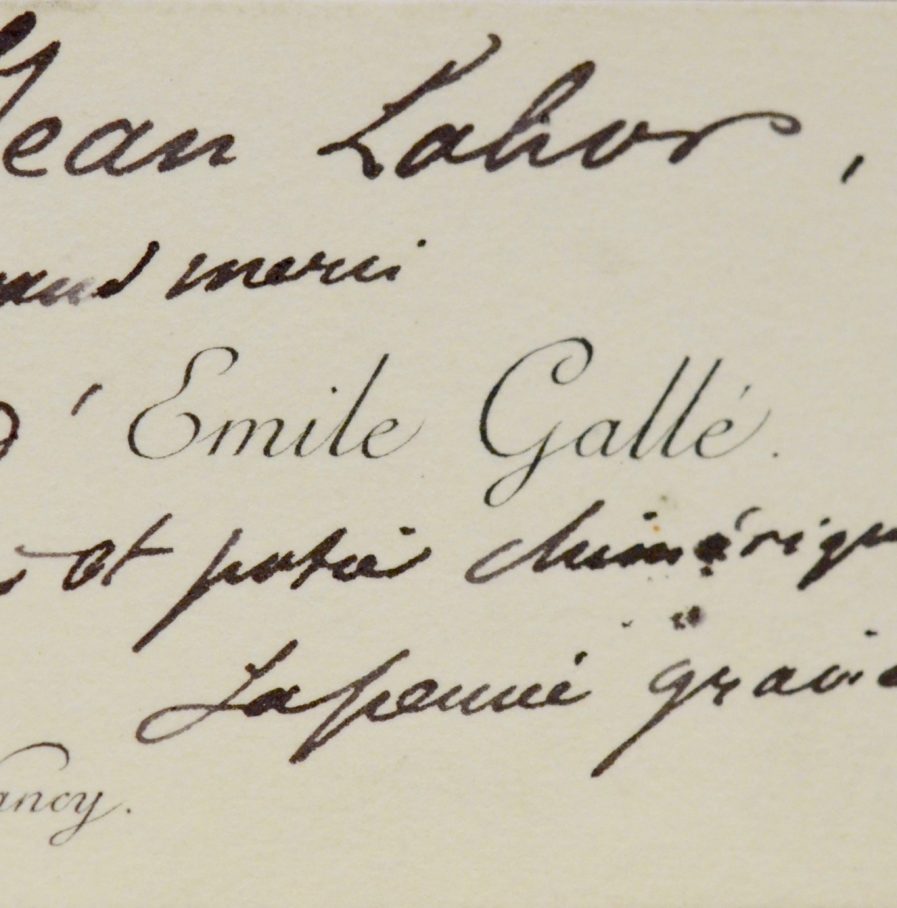 Jean Lahor,
and merci
d' Emile Gallé.
et potier chimériqu
Sa pensée gravé
ancy.